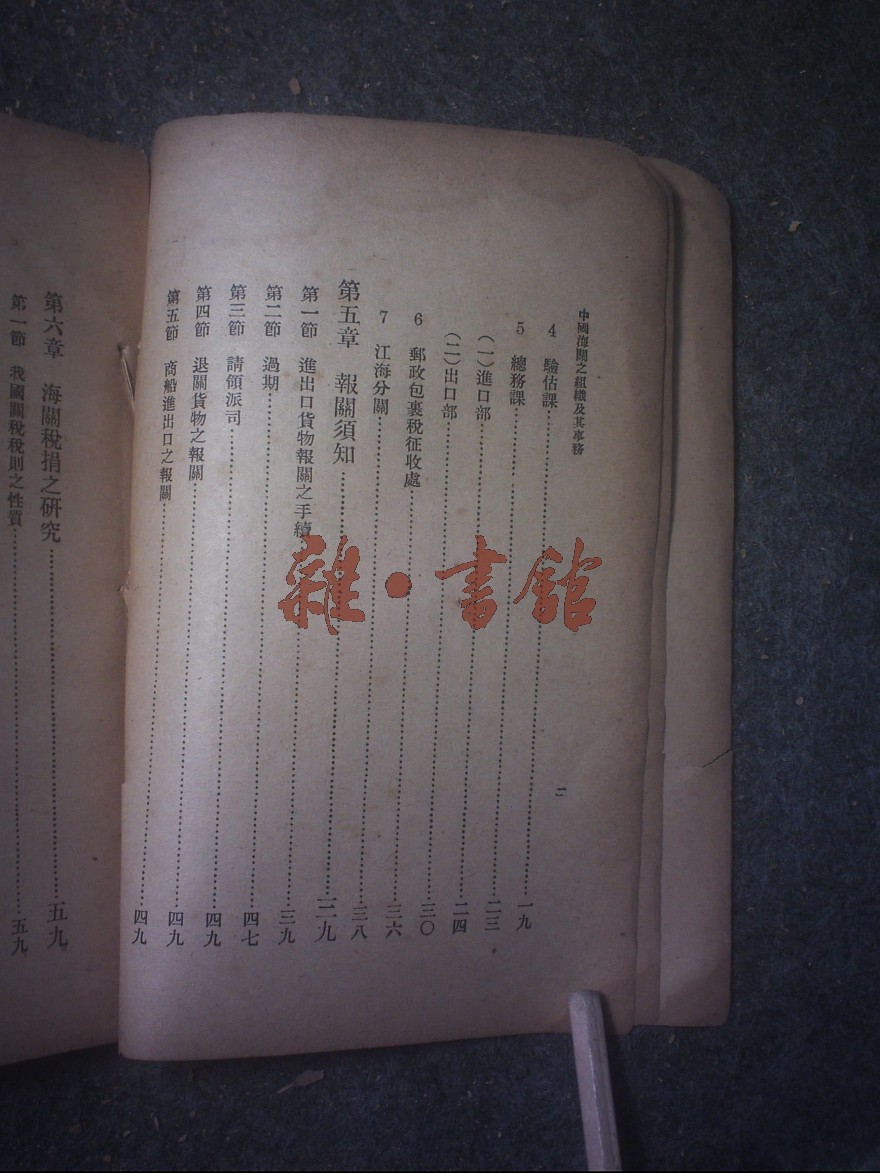 中國海關之組織及其事務
二
4 驗估課……一九
5 總務課……二三
(一)進口部……二四
(二)出口部……三〇
6 郵政包裹稅征收處……三六
7 江海分關……三八
第五章 報關須知……三九
第一節 進出口貨物報關之手續……三九
第二節 過期……四七
第三節 請領派司……四九
第四節 退關貨物之報關……四九
第五節 商船進出口之報關……四九
第六章 海關稅捐之研究……五九
第一節 我國關稅稅則之性質……五九
雜·書館